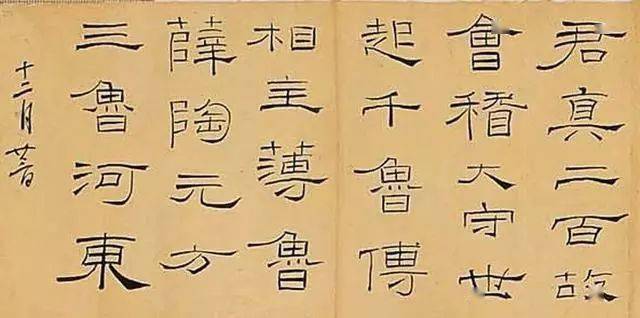 君真二百故
會稽大守世
起千魯傅
相主薄魯
薛陶元方
三魯河東
十二月